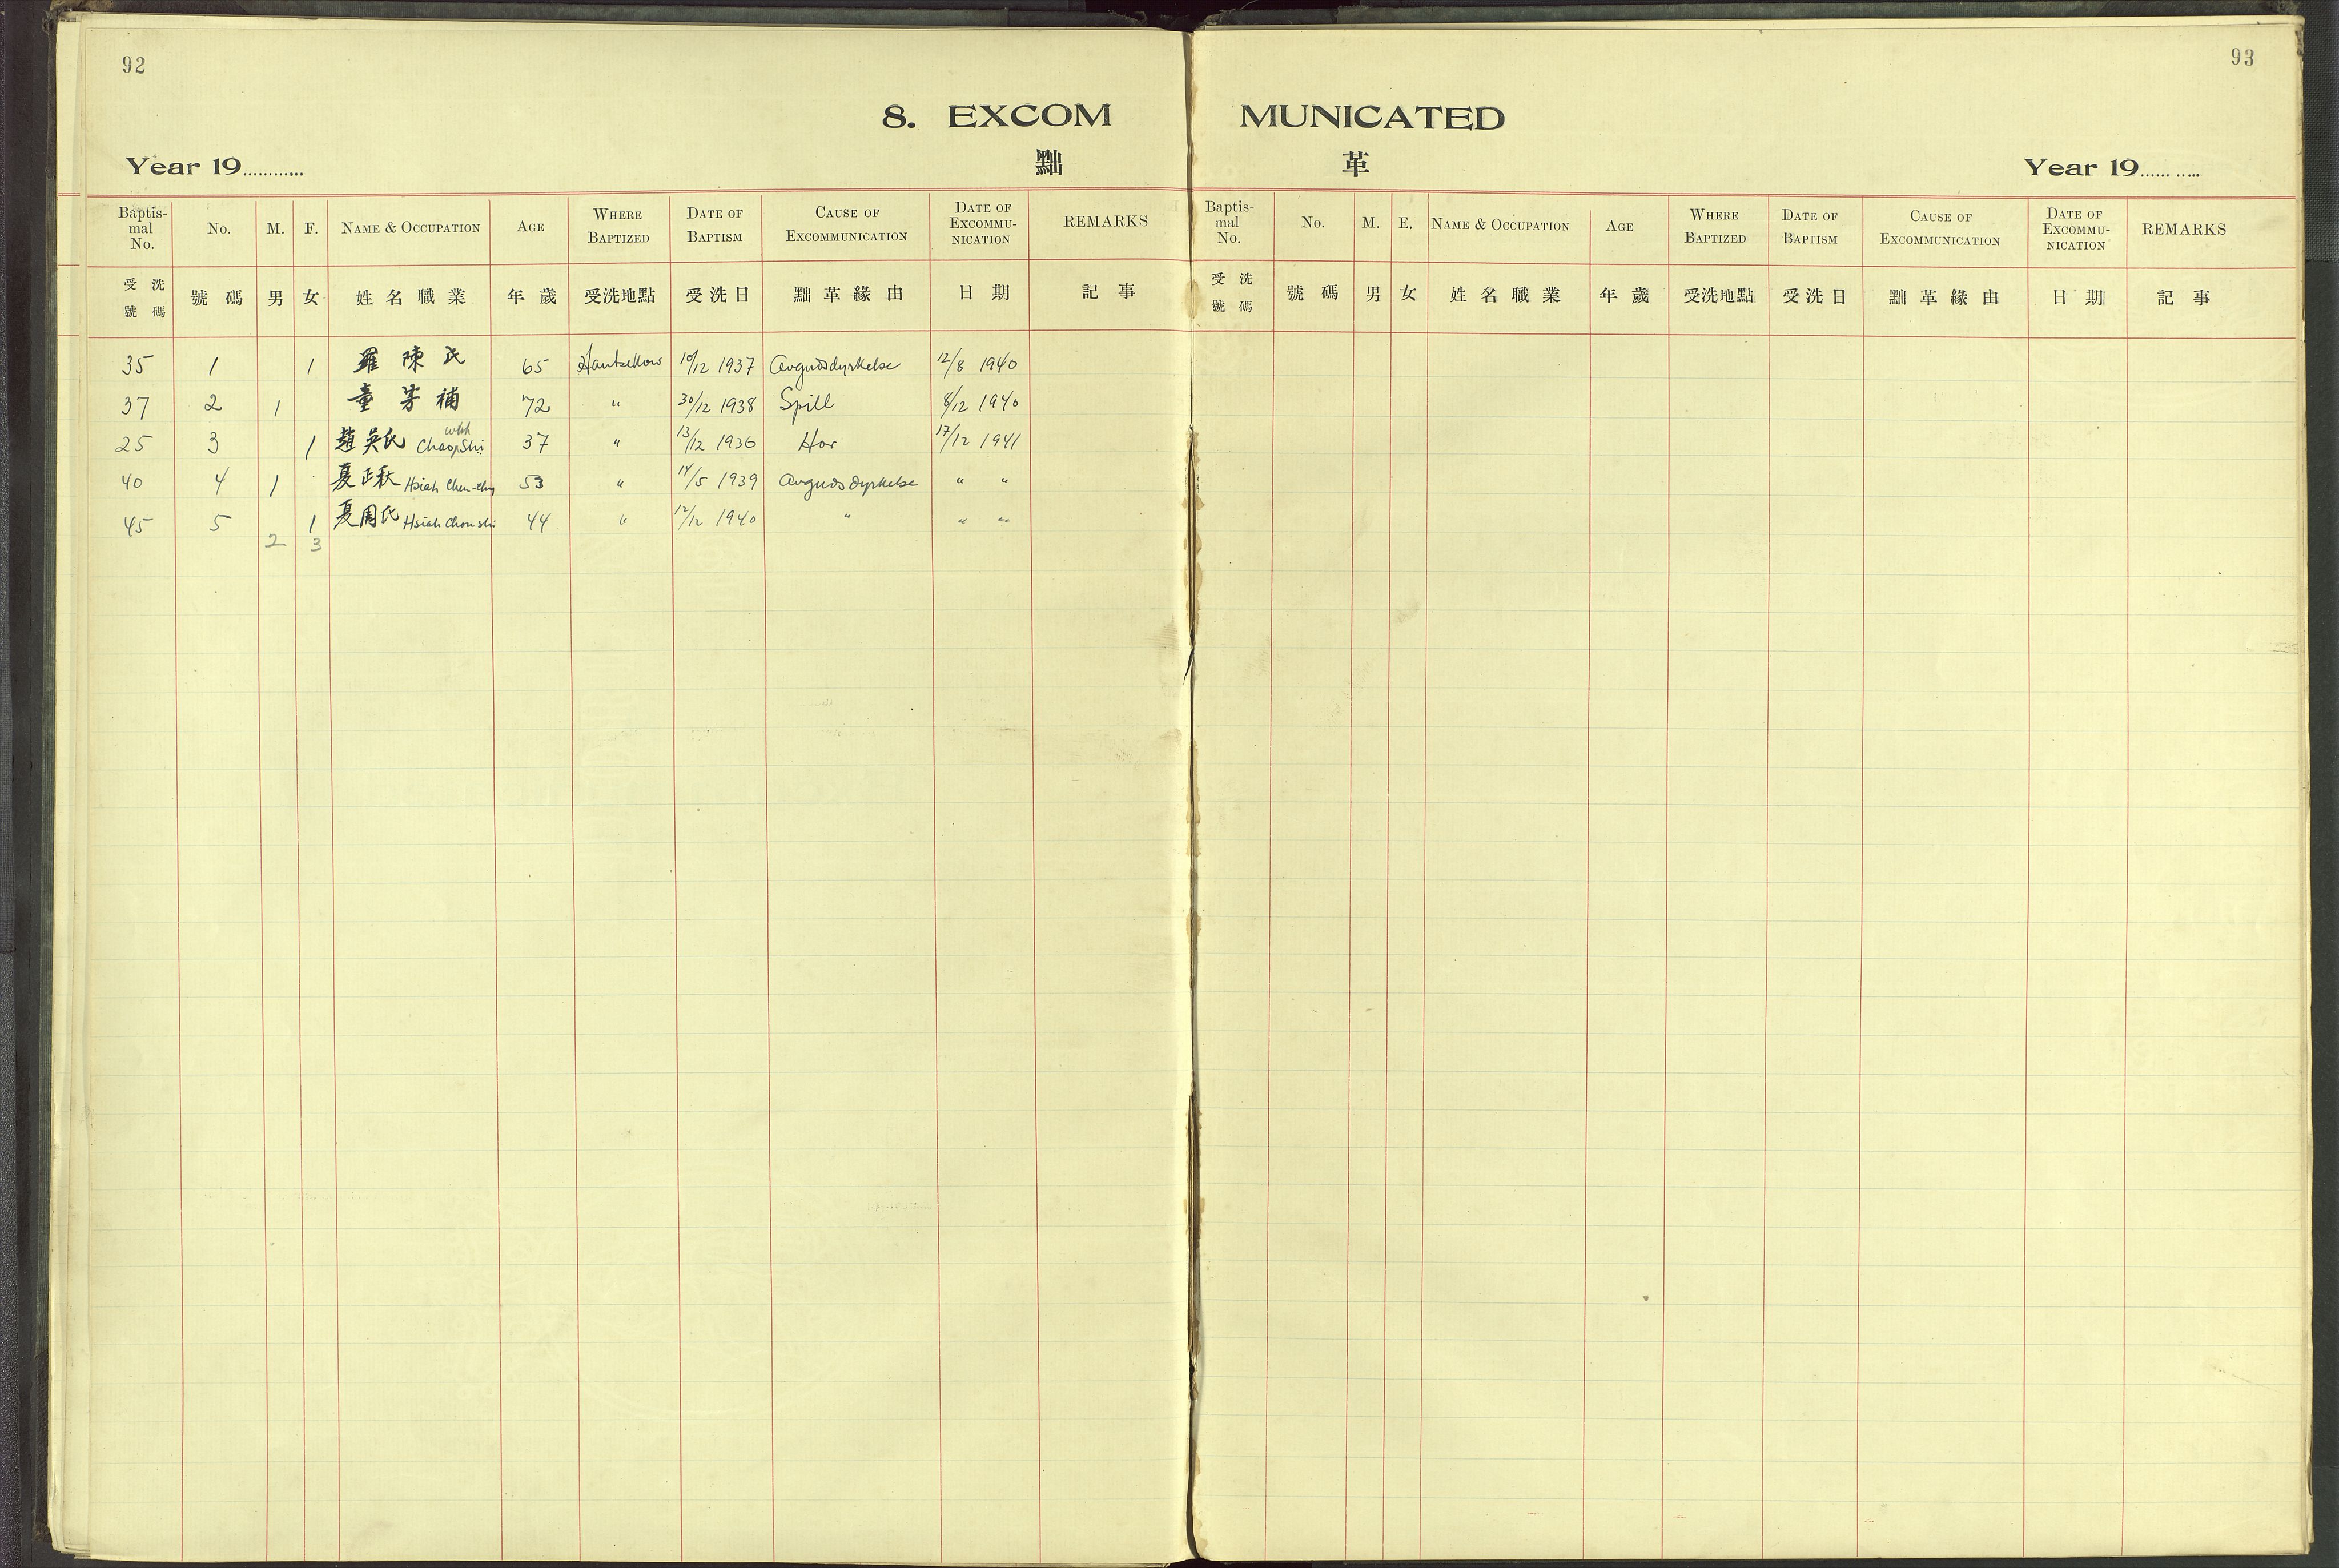 92
93
8. EXCOM MUNICATED
Year 19............ 黜 革 Year 19...........
Baptis- mal No. No. M. F. NAME & OCCUPATION AGE WHERE BAPTIZED DATE OF BAPTISM CAUSE OF EXCOMMUNICATION DATE OF EXCOMMU- NICATION REMARKS
受洗號碼 號碼 男 女 姓名職業 年歲 受洗地點 受洗日 黜革緣由 日期 記事
35 1 1 羅陳氏 65 Hantzekow 10/12 1937 Avgudsdyrkelse 12/8 1940
37 2 1 童芳補 72 " 30/12 1938 Spill 8/12 1940
25 3 1 趙吳氏 Chao Wu Shi 37 " 13/12 1936 Hor 17/12 1941
40 4 1 夏正秋 Hsiah Chen-chiu 53 " 14/5 1939 Avgudsdyrkelse " "
45 5 1 夏周氏 Hsiah Chou shi 44 " 12/12 1940 " " "
2 3
Baptis- mal No. No. M. E. NAME & OCCUPATION AGE WHERE BAPTIZED DATE OF BAPTISM CAUSE OF EXCOMMUNICATION DATE OF EXCOMMU- NICATION REMARKS
受洗號碼 號碼 男 女 姓名職業 年歲 受洗地點 受洗日 黜革緣由 日期 記事